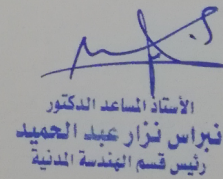 الأستاذ المساعد الدكتور
نبراس نزار عبد الحميد
رئيس قسم الهندسة المدنية